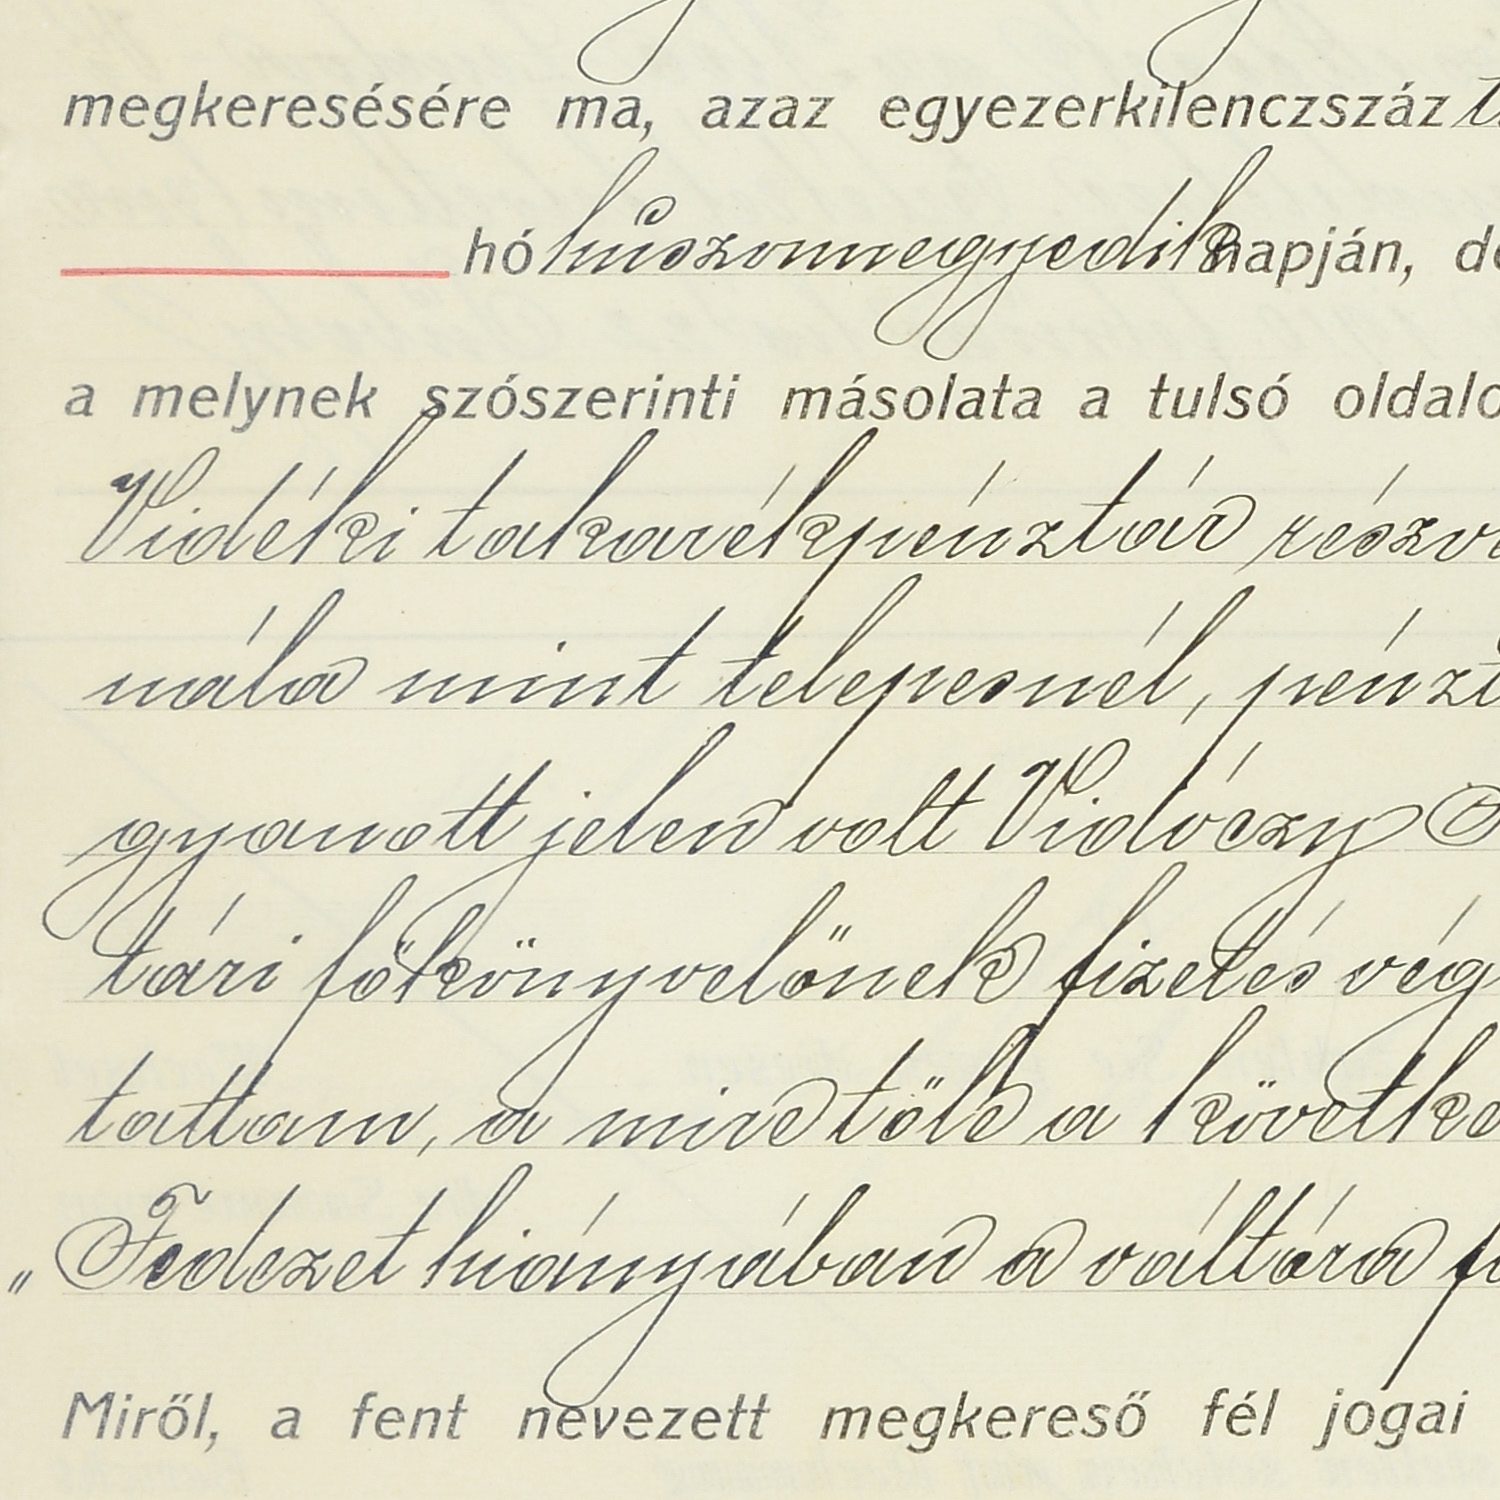 megkeresésére ma, azaz egyezerkilenczszáz
hó húszonnegyedik napján,
a melynek szószerinti másolata a tulsó
Vidéki takarékpénztár
nála mint telepesnél,
gyanott jelen volt Vidóczy
tári főkönyvelőnek fizetés vég
tattam, a mire tőle a követke
„Fedezet hiányában a váltóra
Miről, a fent nevezett megkereső fél jogai